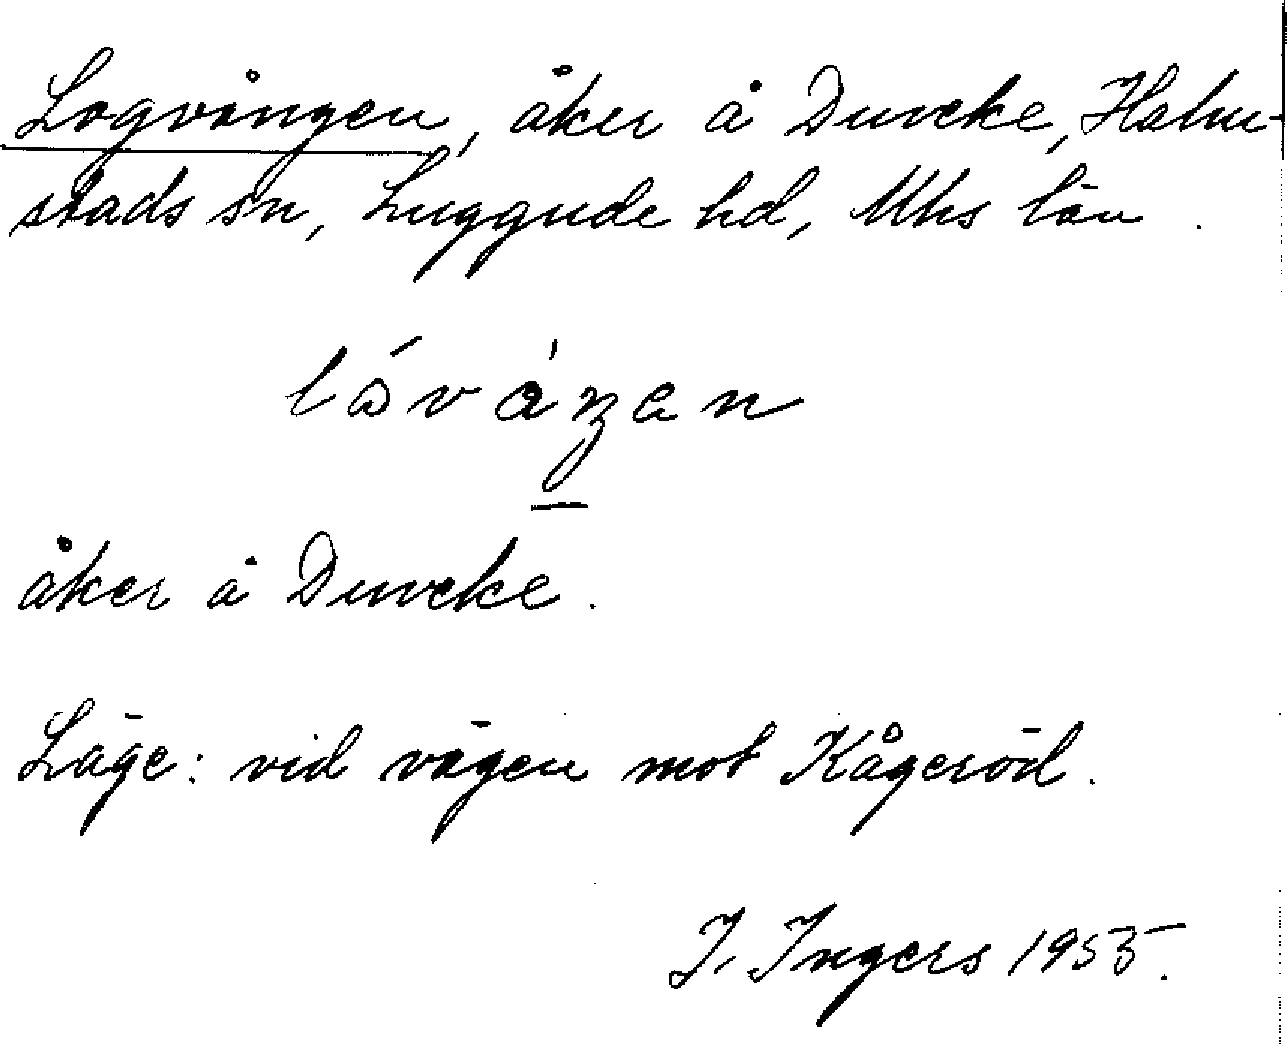 Logvången, åker å Duveke, Halm-
stads sn, Luggude hd, Mhs län.
åker å Duveke.
Läge: vid vägen mot Kågeröd.
I. Ingers 1955.